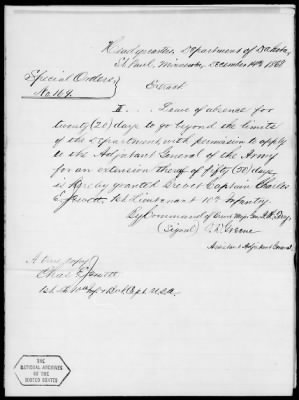 Headquarters, Department of Dakota,
St. Paul, Minnesota, December 14th 1868
Special Orders,
No. 169.
Extract
II . . . Leave of absence for
twenty (20) days to go beyond the limits
of the Department, with permission to apply
to the Adjutant General of the Army
for an extension of fifty (50) days,
is hereby granted Brevet Captain Charles
E. Jewett 1st Lieutenant 10th Infantry.
By Command of
(Signed)
Greene
Assistant Adjutant General.
A true copy
Chas E Jewett
1st Lt Bvt Capt. U.S.A.
THE
NATIONAL ARCHIVES
OF THE
UNITED STATES